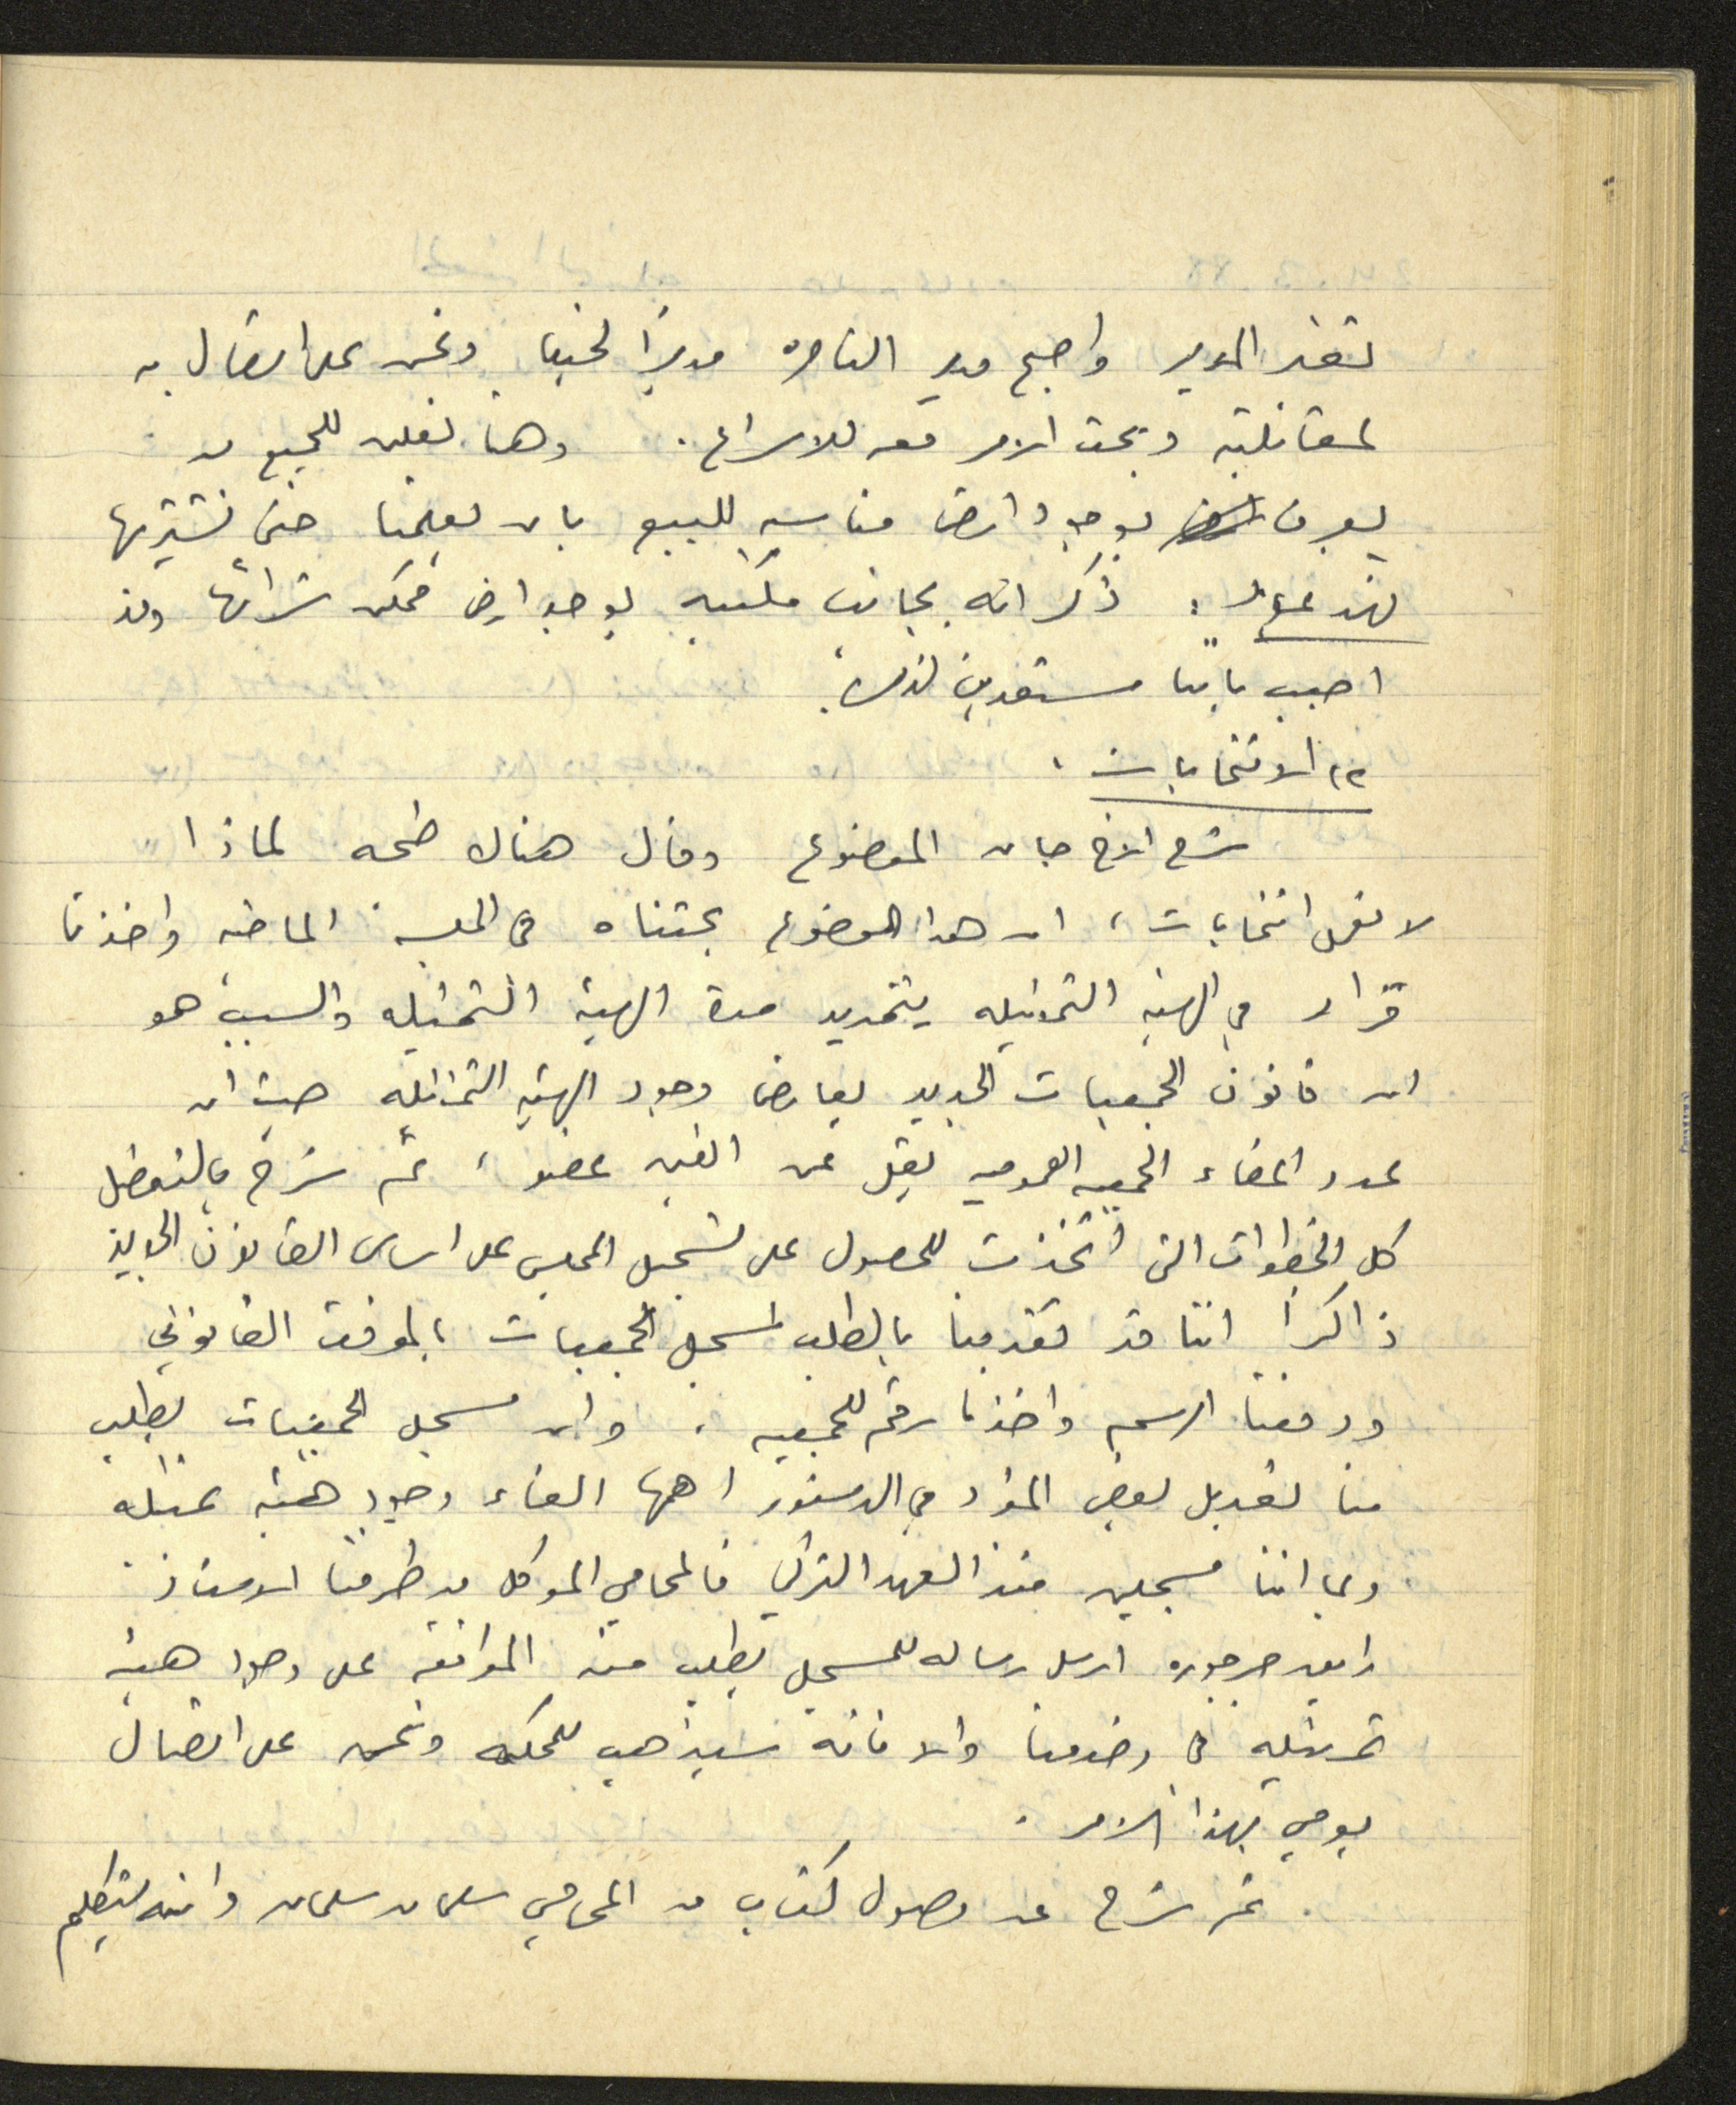 تغير المدير واصبح مدير الناصره مديرًا لحيفا ونحن على اتصال به
لمقابلته وبحث الامر معه للاسراع. وهنا نعلن للجميع من
يعرف بوجود ارض مناسبه للبيع بان يعلمنا حتى نشتريها
فهد عقل: ذكر انه بجانب مكتبه يوجد ارض ممكن شرائها وقد
اجيب باننا مستعدين لذلك.
٢) الانتخابات.
شرح الاخ جان الموضوع وقال هناك ضجه لماذا
لا نعمل انتخابات، ان هذا الموضوع بحثناه في الجلسه الماضيه واخذنا
قرار في الهيئه التمثيليه بتمديد مدة الهيئة التمثيليه والسبب هو
ان قانون الجمعيات الجديد يعارض وجود الهيئه التمثيليه حيث ان
عدد اعضاء الجمعيه العموميه يقل عن الفين عضو، ثم شرح بالتفصيل
كل الخطوات التي اتخذت للحصول على تسجيل المجلس على اساس القانون الجديد
ذاكرًا اننا قد تقدمنا بالطلب لمسجل الجمعيات بالموقت القانوني
ودفعنا الرسم واخذنا رقم للجمعيه. وان مسجل الجمعيات يطلب
منا تعديل بعض المواد في الدستور اهمها الغاء وجود هيئه تمثيليه
وبما اننا مسجلين منذ العهد التركي فالمحامي الموكل من طرفنا الاستاذ
رائق جرجوره ارسل رساله للمسجل يطلب منه الموافقه على وجود هيئه
تمثيليه في وضعنا والا فانه سيذهب للمحكمه ونحن على اتصال
يومي بهذا الامر.
ثم شرح عن وصول كتاب من المحامي سليمان سليمان وانه يتكلم